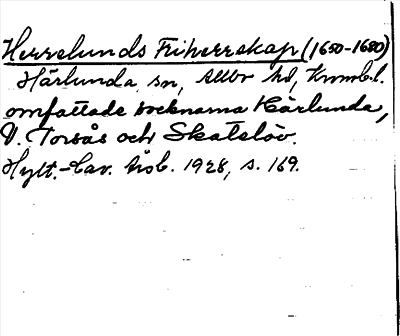 Herrelunds Friherrskap (1650-1680)
Härlunda sn, Allbo hd, Kronob. l.
omfattade socknarna Härlunda,
V. Torsås och Skatelöv.
Hylt.-Cav. årsb. 1928, s. 169.